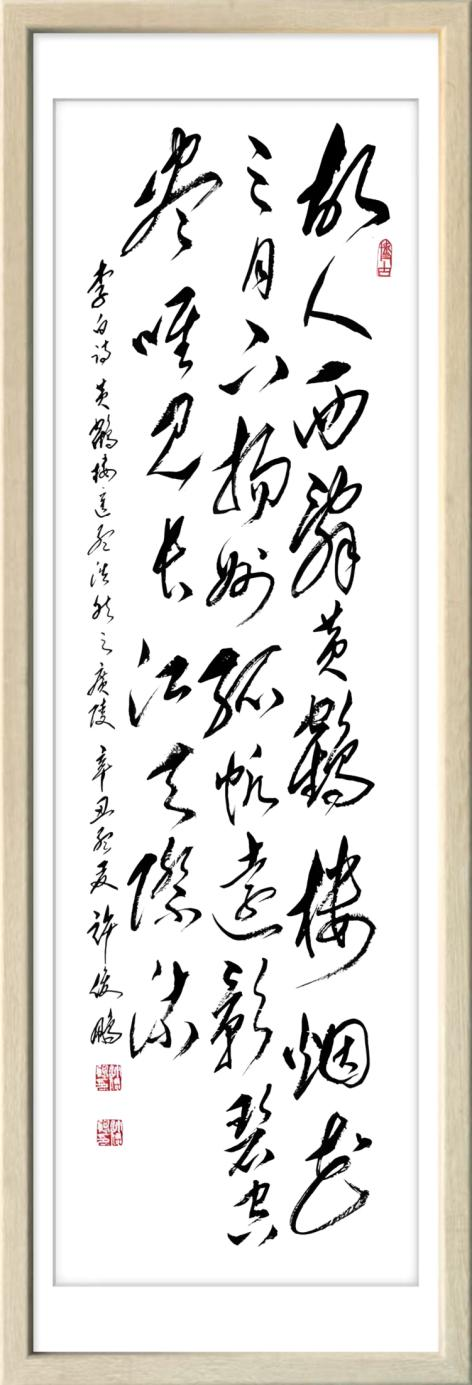 故人西辭黄鶴楼烟花
三月下揚州孤帆遠影碧空
尽唯见长江天際流
李白诗 黄鶴楼送孟浩然之廣陵 辛丑孟夏 許俊鵬